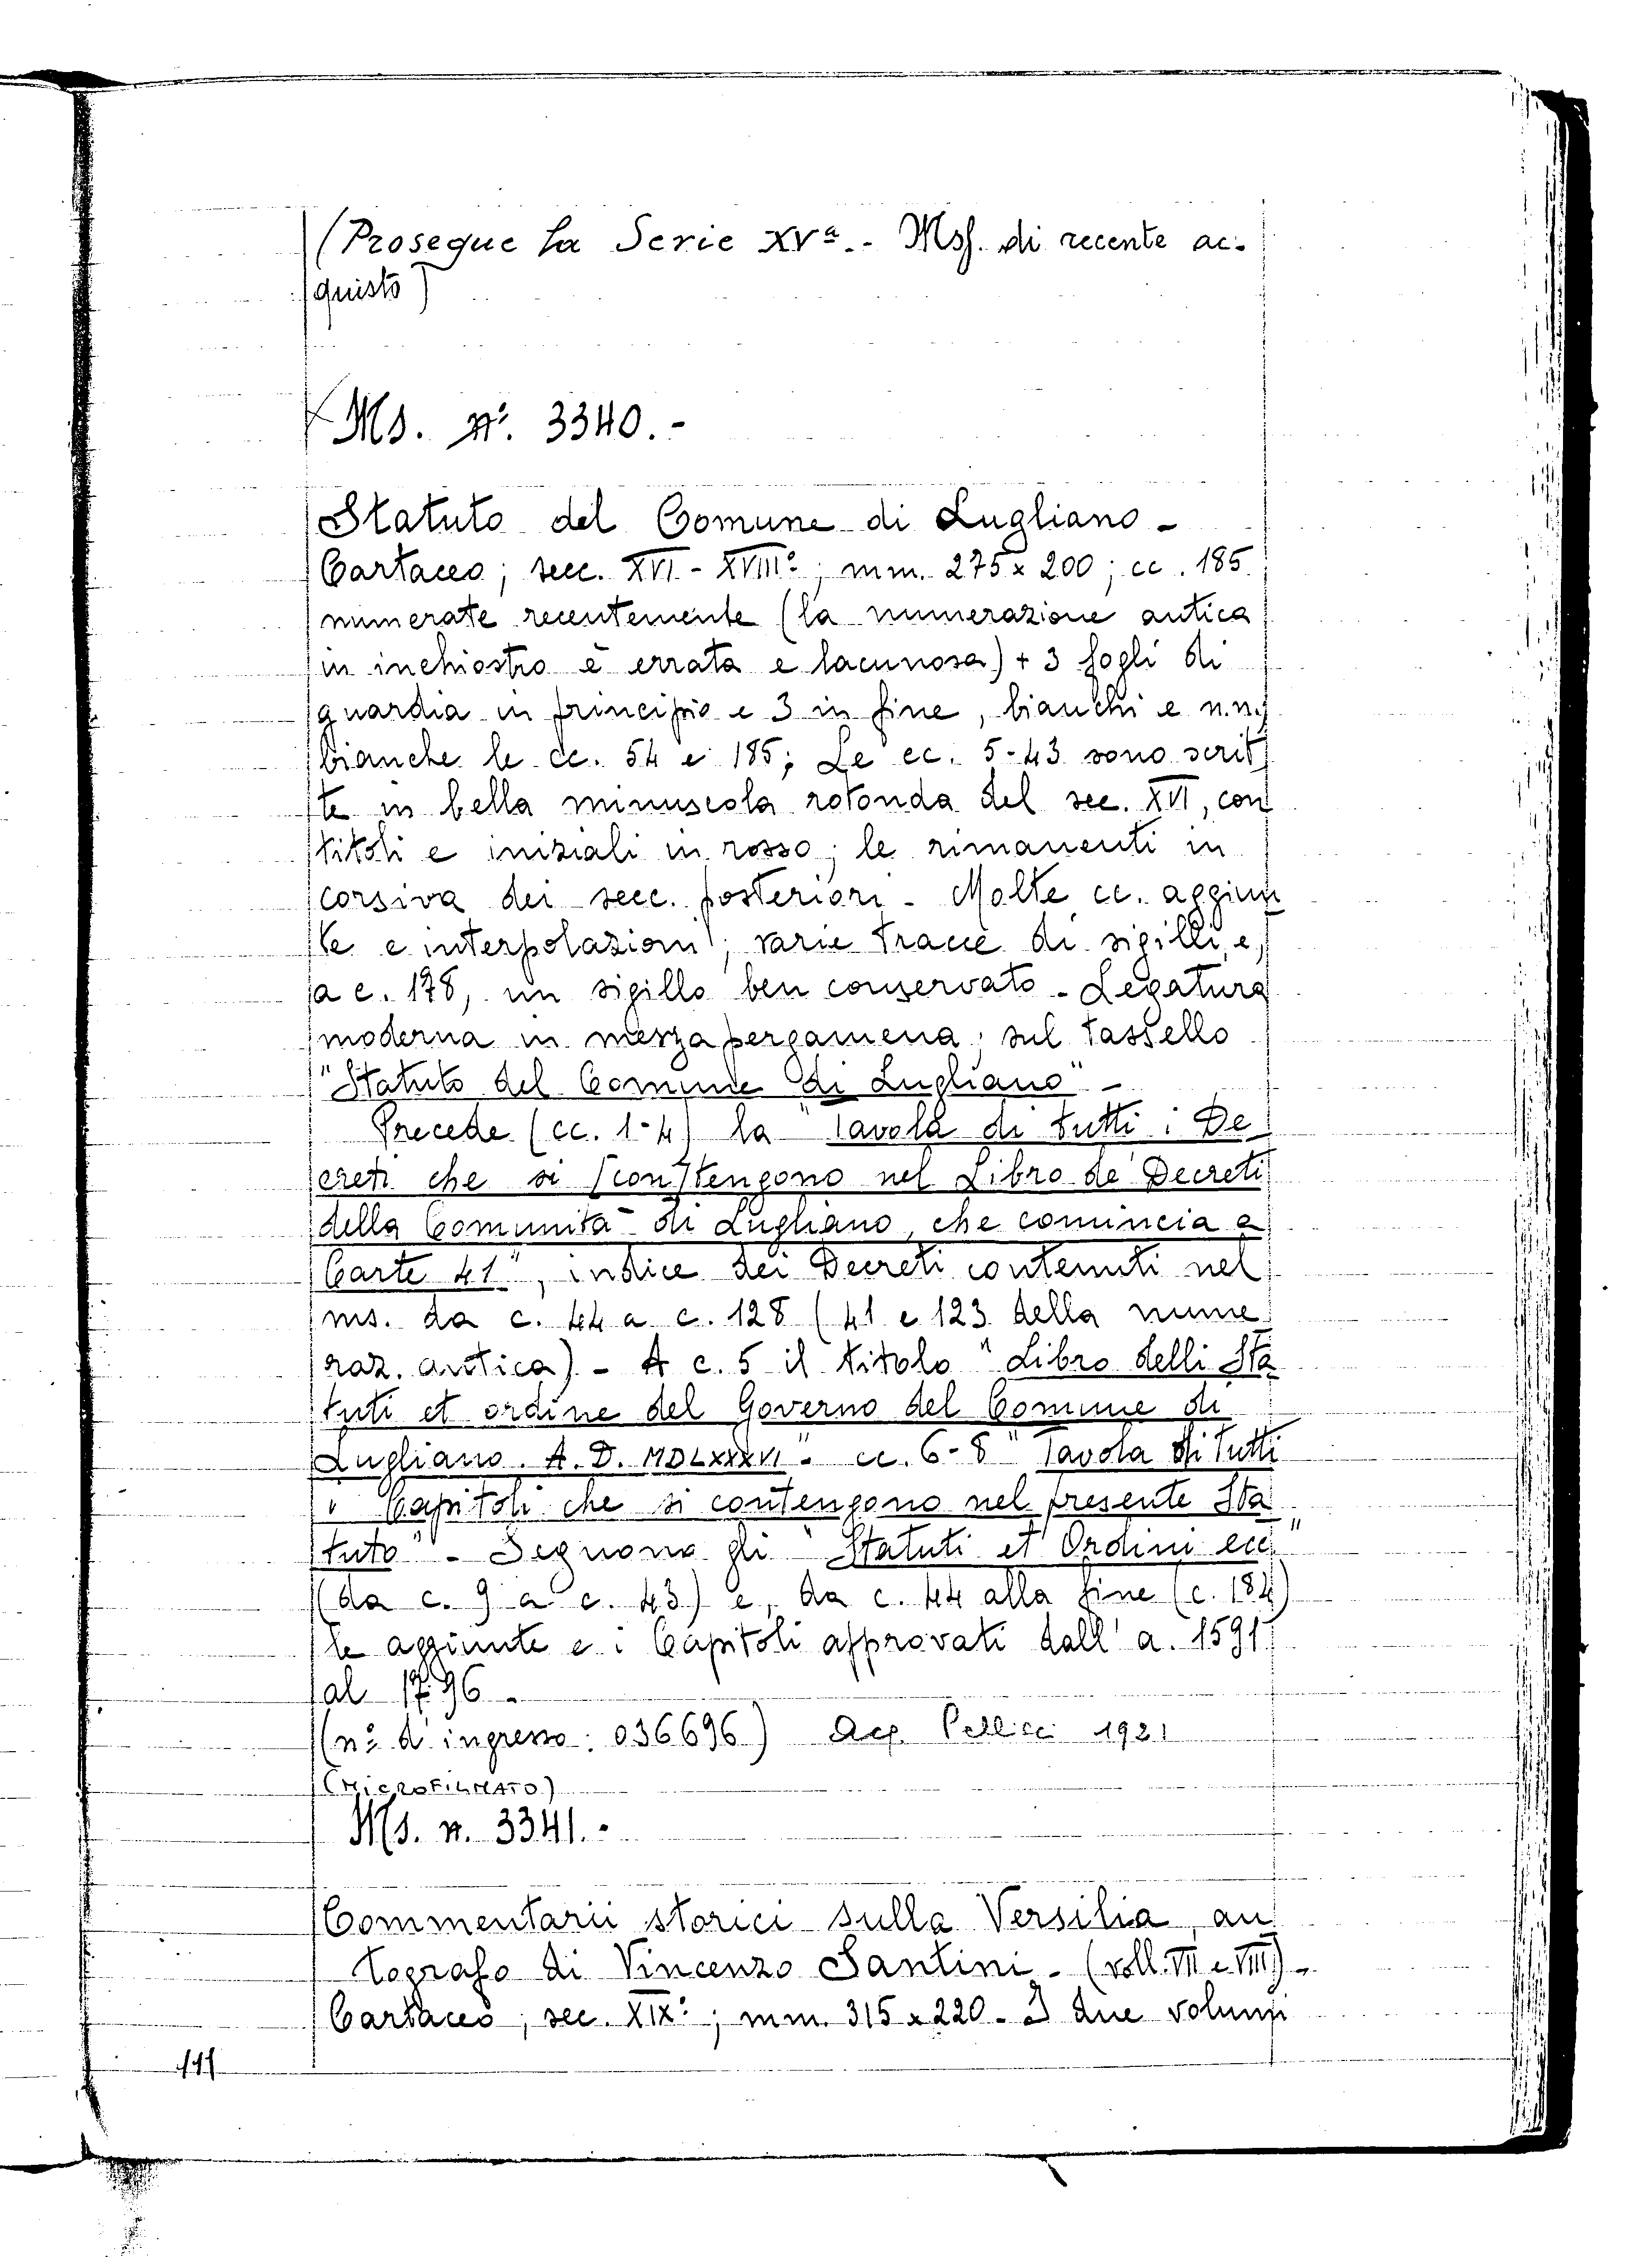 (Prosegue la Serie XVª.- Mss. di recente ac-
quisto)
Ms. nº. 3340.-
Statuto del Comune di Lugliano -
Cartaceo; secc. XVI - XVIIIº; mm. 275 x 200; cc. 185
numerate recentemente (la numerazione antica
in inchiostro è errata e lacunosa) + 3 fogli di
guardia in principio e 3 in fine, bianchi e n.n.;
bianche le cc. 54 e 185; Le cc. 5-43 sono scrit
te in bella minuscola rotonda del sec. XVI, con
titoli e iniziali in rosso; le rimanenti in
corsiva dei secc. posteriori - Molte cc. aggiun
te e interpolazioni; varie tracce di sigilli, e,
a c. 178, un sigillo ben conservato - Legatura
moderna in mezza pergamena; sul tassello
"Statuto del Comune di Lugliano" -
Precede (cc. 1-4) la "Tavola di tutti i De
creti che si [con]tengono nel Libro de' Decreti
della Comunità di Lugliano, che comincia a
Carte 41", indice dei Decreti contenuti nel
ms. da c. 44 a c. 128 (41 e 123 della nume
raz. antica) - A c. 5 il titolo "Libro delli Sta
tuti et ordine del Governo del Comune di
Lugliano. A. D. MDLXXXVI" - cc. 6-8 "Tavola di Tutti
i Capitoli che si contengono nel presente Sta
tuto" - Seguono gli "Statuti et Ordini ecc."
(da c. 9 a c. 43) e, da c. 44 alla fine (c. 184)
le aggiunte e i Capitoli approvati dall' a. 1591
al 1796 -
(nº d'ingresso: 036696) Acq. Pellicci 1921
(MICROFILMATO)
Ms. n. 3341.-
Commentarii storici sulla Versilia, au
tografo di Vincenzo Santini - (voll. VII e VIII) -
Cartaceo; sec. XIXº; mm. 315 x 220 - I due volumi
111